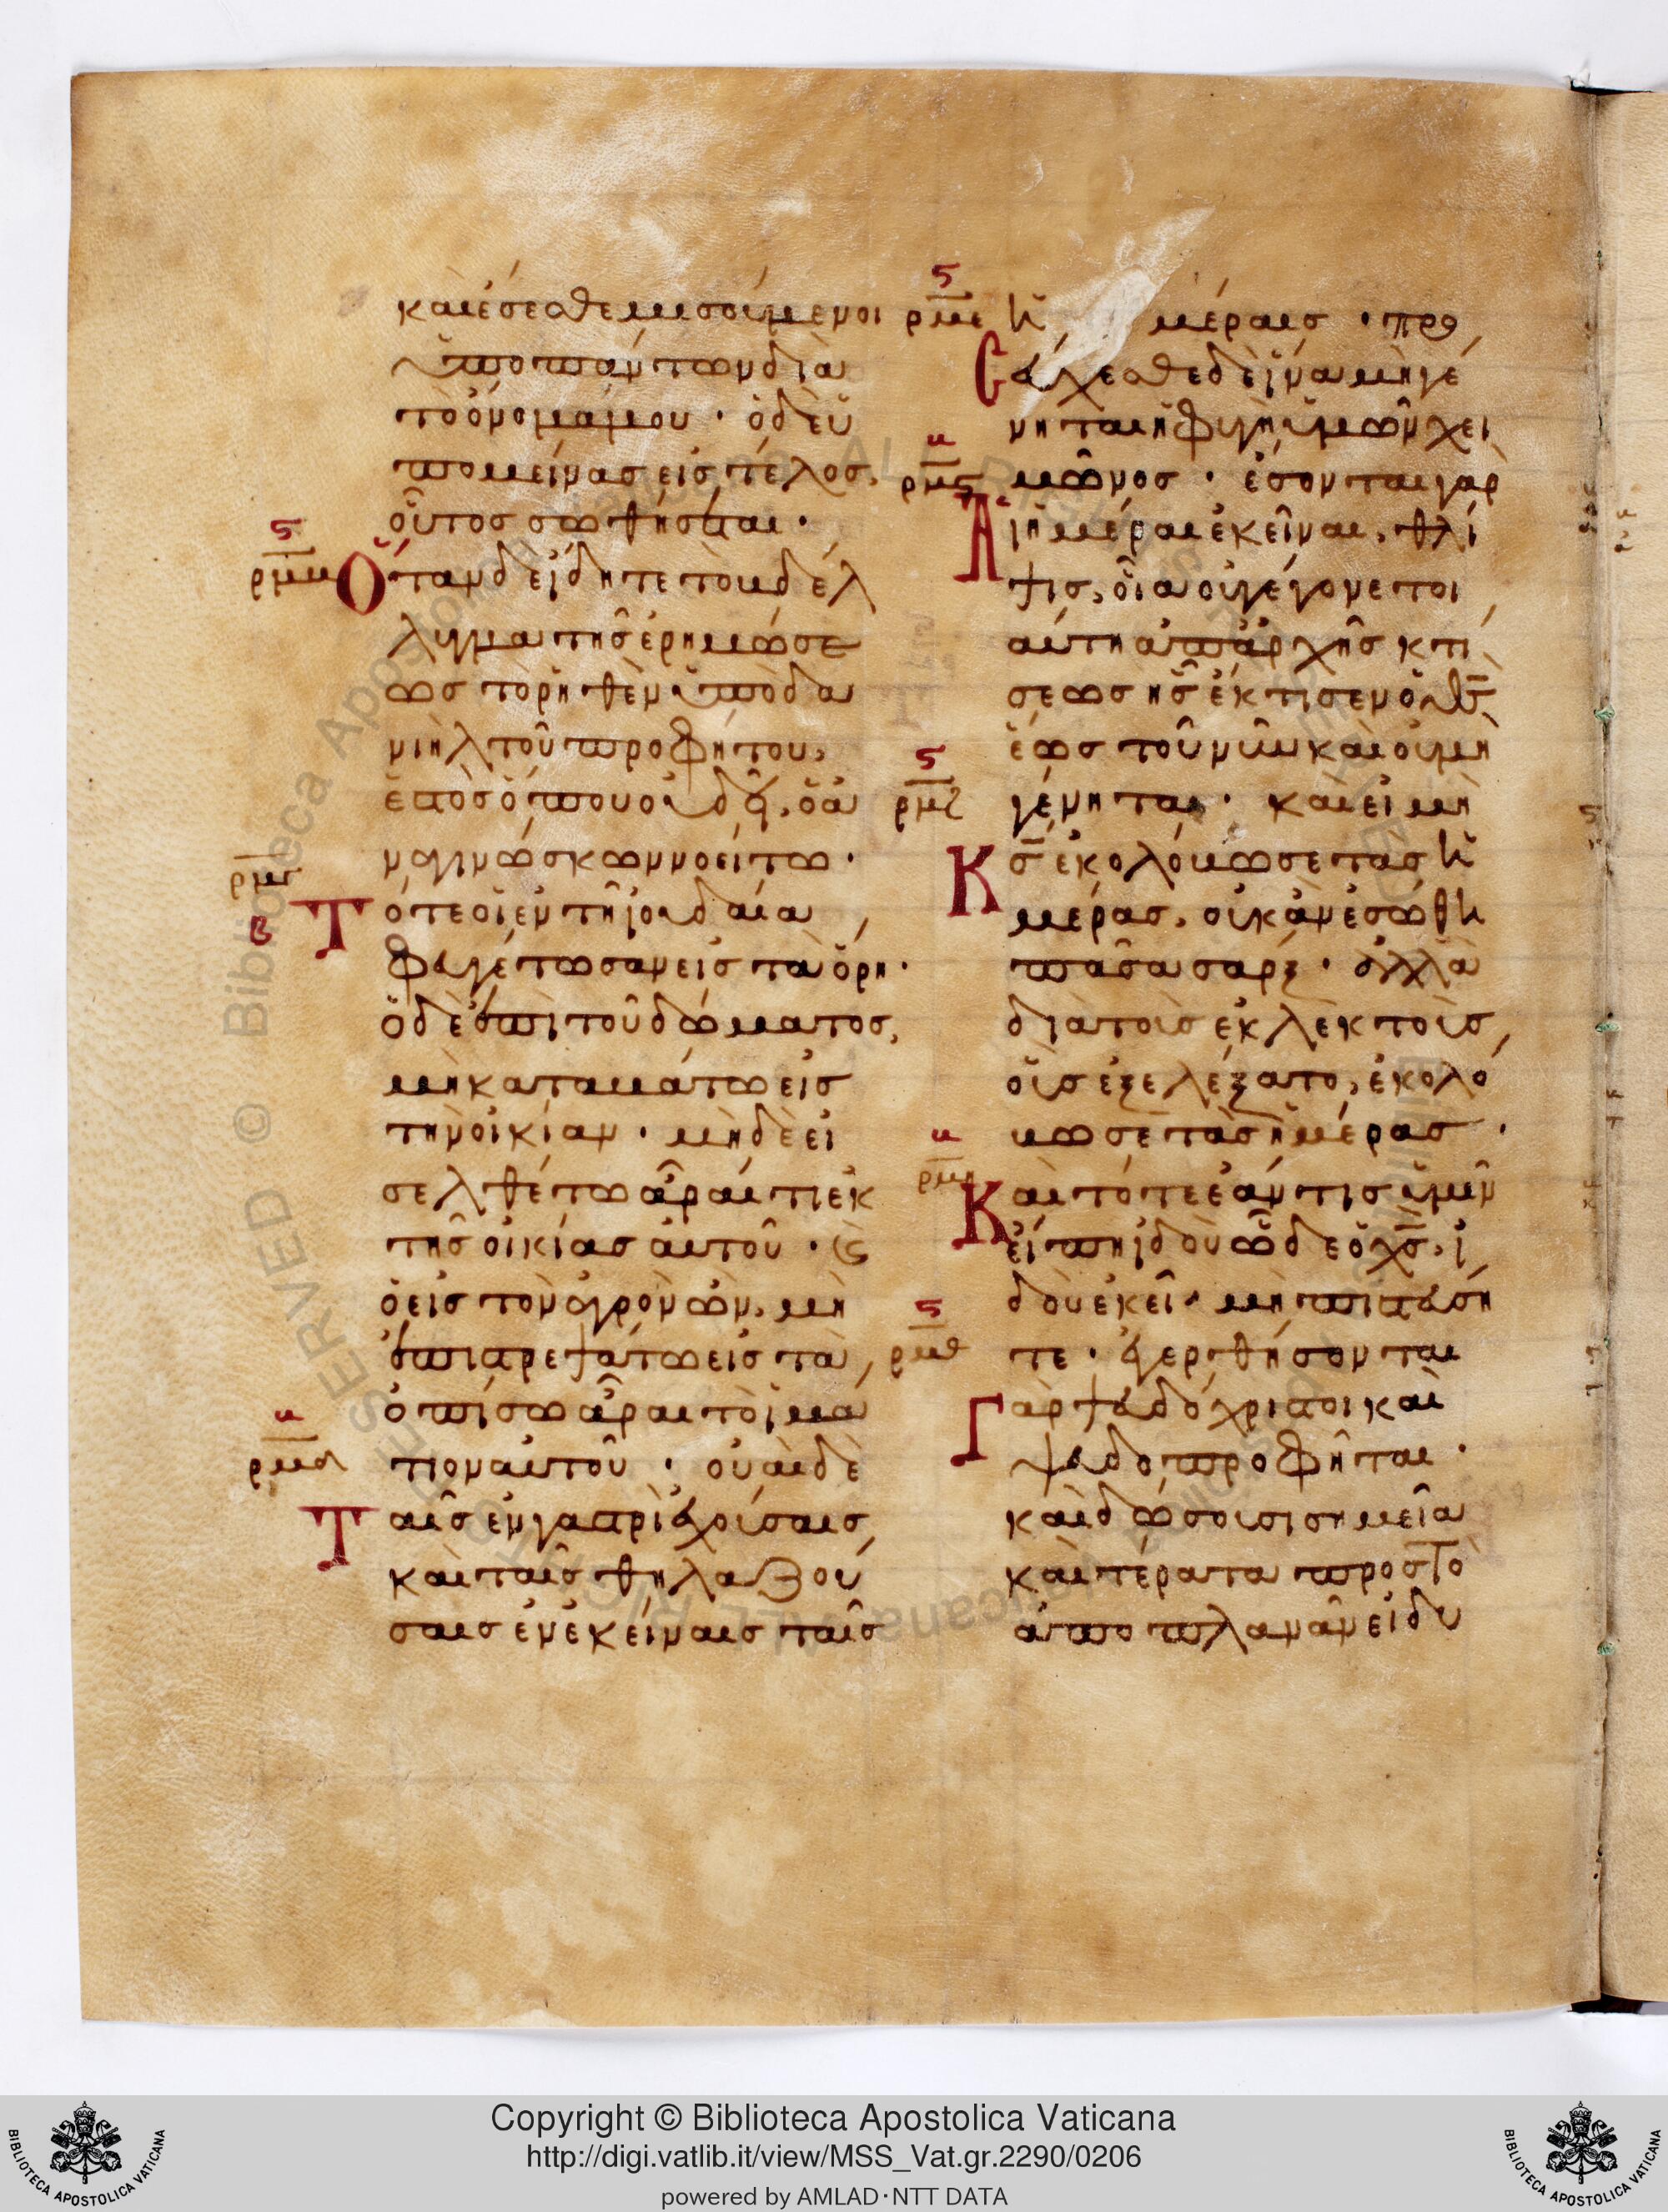 καὶ ἔσεσθε μισούμενοι
ὑπὸ πάντων διὰ
τὸ ὄνομά μου · ὁ δὲ ὑ
πομείνας εἰς τέλος,
οὗτος σωθήσεται ·
ς
ρμβ
Ὅταν δὲ ἴδητε τὸ βδέλ
λυγμα τῆς ἐρημώσε
ως τὸ ῥηθὲν ὑπὸ Δα
νιὴλ τοῦ προφήτου,
ἑστὸς ὅπου οὐ δεῖ, ὁ ἀ
ναγινώσκων νοείτω ·
ρμγ
β
Τότε οἱ ἐν τῇ Ἰουδαίᾳ
φευγέτωσαν εἰς τὰ ὄρη ·
ὁ δὲ ἐπὶ τοῦ δώματος,
μὴ καταβάτω εἰς
τὴν οἰκίαν · μηδὲ εἰ
σελθέτω ἆραί τι ἐκ
τῆς οἰκίας αὐτοῦ · καὶ
ὁ εἰς τὸν ἀγρὸν ὤν, μὴ
ἐπιστρεψάτω εἰς τὰ
ὀπίσω ἆραι τὸ ἱμά
τιον αὐτοῦ · οὐαὶ δὲ
β
ρμδ
Ταῖς ἐν γαστρὶ ἐχούσαις
καὶ ταῖς θηλαζού
σαις ἐν ἐκείναις ταῖς
ς
ρμε
ἡμέραις · προ
Σεύχεσθε δὲ ἵνα μὴ γέ
νηται ἡ φυγὴ ὑμῶν χει
β
ρμς
μῶνος · ἔσονται γὰρ
Αἱ ἡμέραι ἐκεῖναι, θλί
ψις, οἵα οὐ γέγονε τοι
αύτη ἀπ' ἀρχῆς κτί
σεως ἧς ἔκτισεν ὁ θς
ἕως τοῦ νῦν καὶ οὐ μὴ
ς
ρμζ
γένηται · καὶ εἰ μὴ
Κς ἐκολόβωσε τὰς ἡ
μέρας, οὐκ ἂν ἐσώθη
πᾶσα σάρξ · ἀλλὰ
διὰ τοὺς ἐκλεκτοὺς,
οὓς ἐξελέξατο, ἐκολό
βωσε τὰς ἡμέρας ·
β
ρμη
Καὶ τότε ἐάν τις ὑμῖν
εἴπῃ ἰδοὺ ὧδε ὁ χς, ἰ
δοὺ ἐκεῖ · μὴ πιστεύση
ς
ρμθ
τε · ἐγερθήσονται
Γὰρ ψευδόχριστοι καὶ
ψευδοπροφῆται ·
καὶ δώσουσι σημεῖα
καὶ τέρατα πρὸς τὸ
ἀποπλανᾶν εἰ δυ
Copyright © Biblioteca Apostolica Vaticana
http://digi.vatlib.it/view/MSS_Vat.gr.2290/0206
powered by AMLAD·NTT DATA
BIBLIOTECA APOSTOLICA VATICANA
BIBLIOTECA APOSTOLICA VATICANA